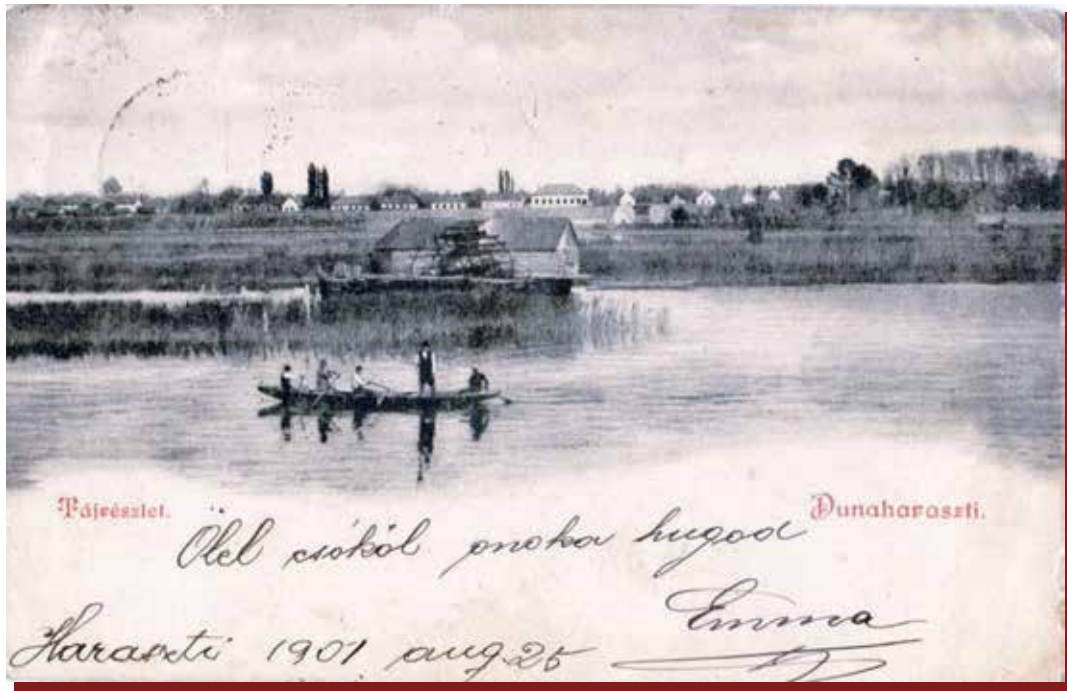 Tájrészlet.
Dunaharaszti.
Ölel csókól onoka hugod
Emma
Haraszti 1901 aug. 25